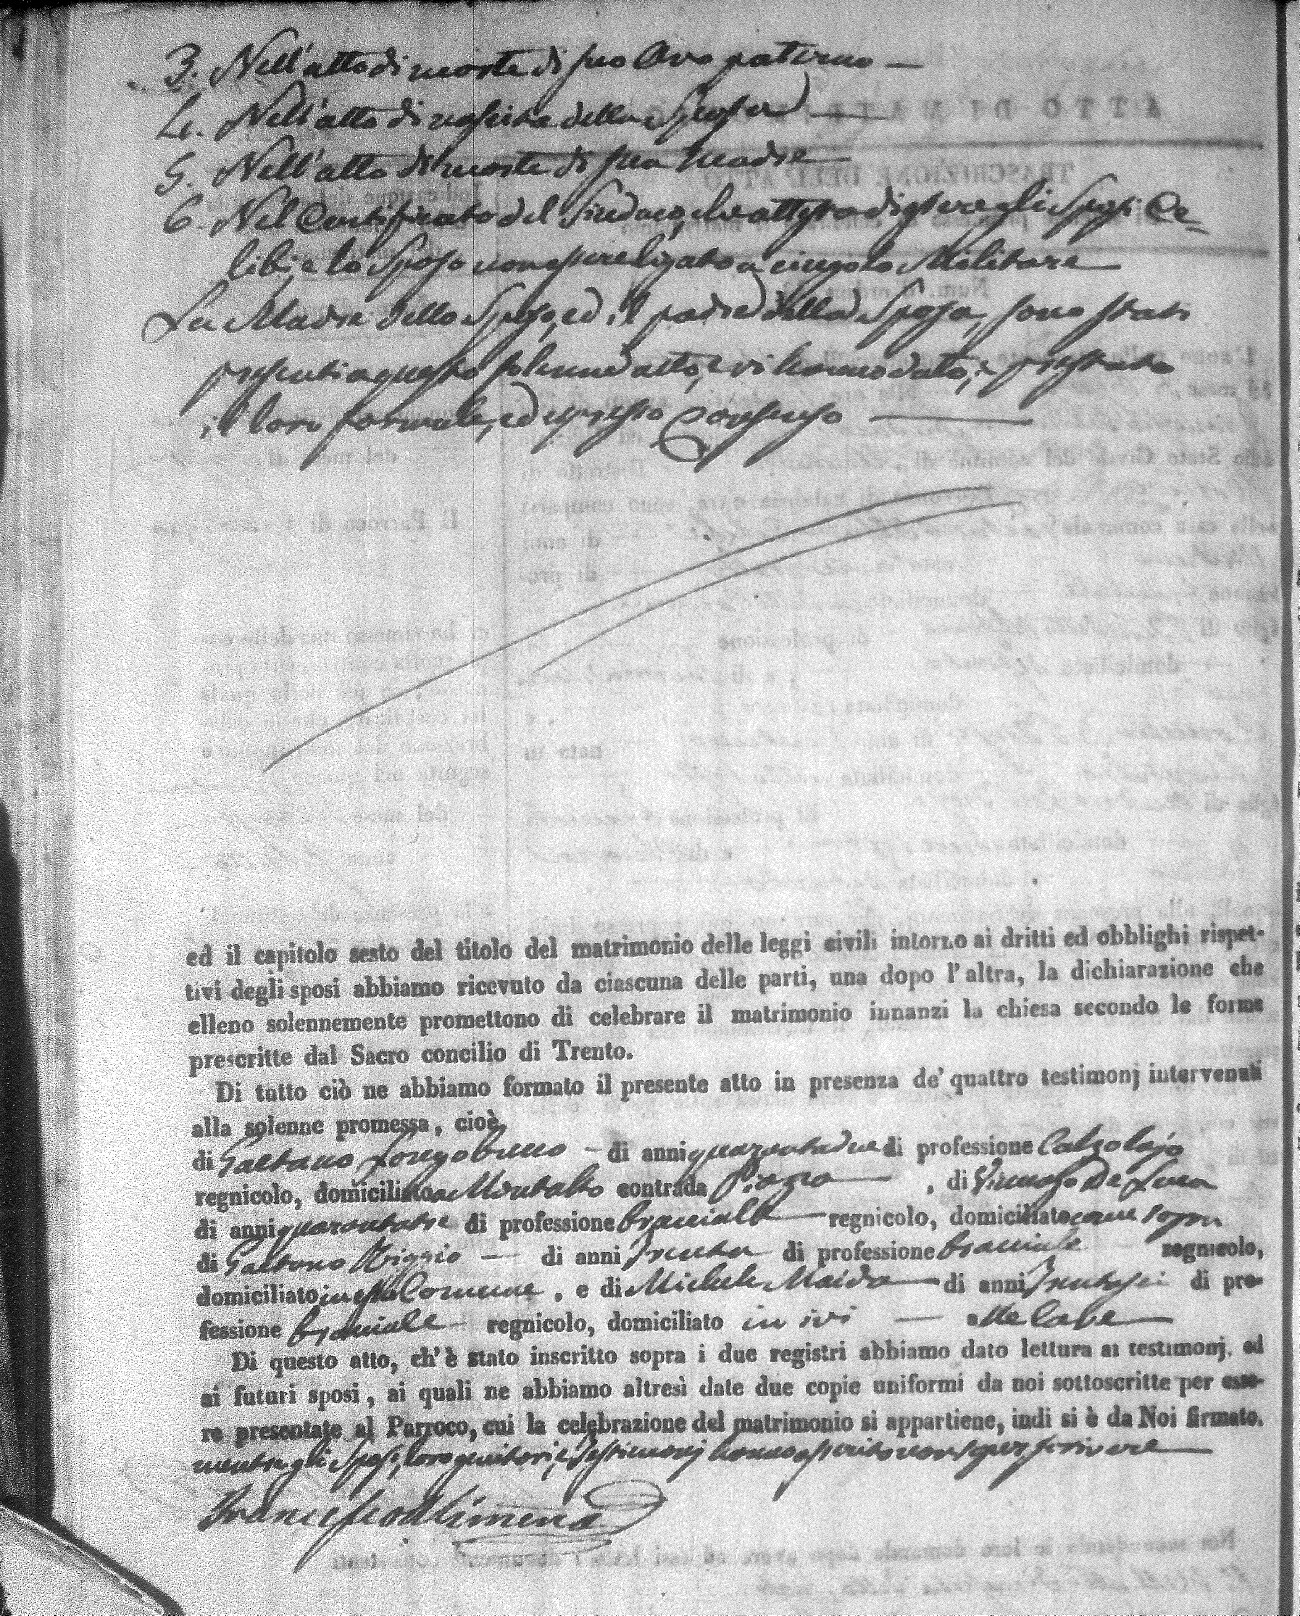 3. Nell'atto di morte di suo Avo paterno —
4. Nell'atto di nascita della Sposa —
5. Nell'atto di morte di sua Madre —
6. Nel Certificato del Sindaco, che attesta di essere gli Sposi Ce-
libi, e lo Sposo non essere ligato a cingolo Militare —
La Madre dello Sposo, ed il padre della Sposa, sono stati
presenti a questo solenne atto, e vi hanno dato, e prestato
il loro formale, ed espresso consenso —
ed il capitolo sesto del titolo del matrimonio delle leggi civili intorno ai dritti ed obblighi rispet-
tivi degli sposi abbiamo ricevuto da ciascuna delle parti, una dopo l'altra, la dichiarazione che
elleno solennemente promettono di celebrare il matrimonio innanzi la chiesa secondo le forme
prescritte dal Sacro concilio di Trento.
Di tutto ciò ne abbiamo formato il presente atto in presenza de' quattro testimonj intervenuti
alla solenne promessa, cioè,
di Gaetano Longobucco — di anni quarantadue di professione Calzolajo
regnicolo, domiciliato a Montalto contrada Piazza — , di Vincenzo De Luca
di anni quarantatre di professione bracciale — regnicolo, domiciliato come sopra
di Gaetano — di anni trenta — di professione bracciale regnicolo,
domiciliato in questo Comune , e di Michele Maida — di anni trentasei di pro-
fessione bracciale — regnicolo, domiciliato in ivi —
Di questo atto, ch'è stato inscritto sopra i due registri abbiamo dato lettura ai testimonj, ed
ai futuri sposi, ai quali ne abbiamo altresì date due copie uniformi da noi sottoscritte per esse-
re presentate al Parroco, cui la celebrazione del matrimonio si appartiene, indi si è da Noi firmato.
mentre gli Sposi, loro genitori, e testimonj hanno asserito non saper scrivere —
Francesco Alimena